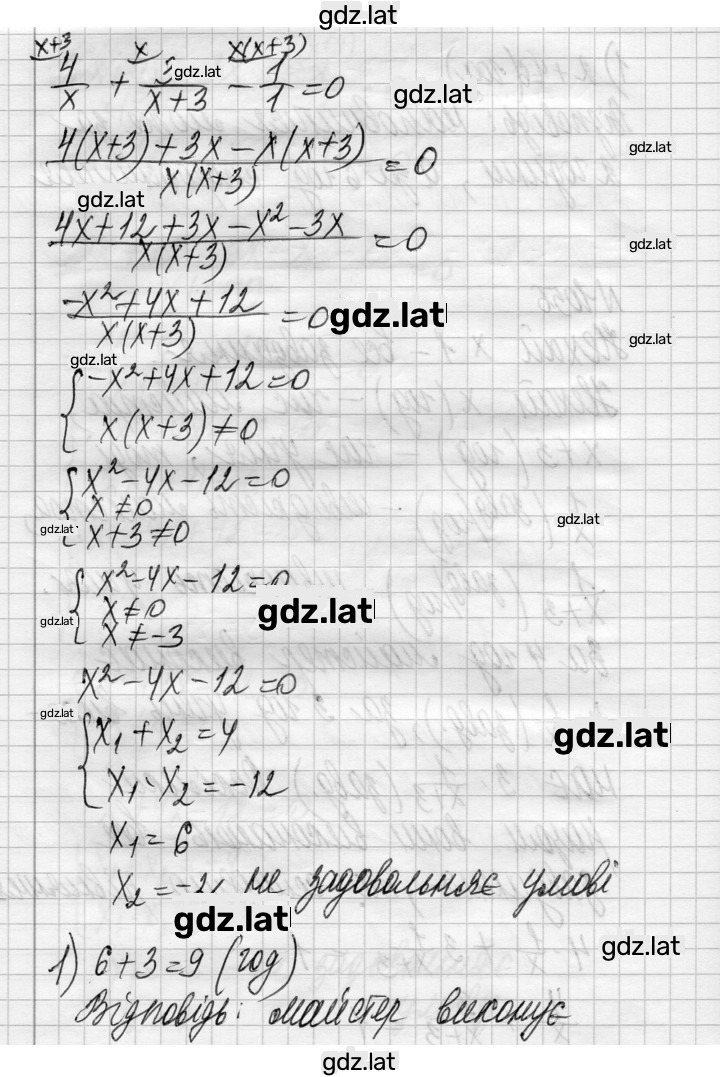 gdz.lat
x+3 x x(x+3)
4/x + 3/(x+3) - 1/1 = 0
gdz.lat
gdz.lat
(4(x+3)+3x-x(x+3))/(x(x+3)) = 0
gdz.lat
gdz.lat
(4x+12+3x-x²-3x)/(x(x+3)) = 0
gdz.lat
(-x²+4x+12)/(x(x+3)) = 0
gdz.lat
gdz.lat
gdz.lat
{ -x²+4x+12=0
x(x+3)≠0
{ x²-4x-12=0
x≠0
gdz.lat
gdz.lat
x+3≠0
{ x²-4x-12=0
x≠0
gdz.lat
gdz.lat
x≠-3
x²-4x-12=0
gdz.lat
{ x₁+x₂=4
gdz.lat
x₁·x₂=-12
x₁=6
x₂=-2, не задовольняє умові
gdz.lat
gdz.lat
1) 6+3=9 (год)
Відповідь: майстер виконує
gdz.lat